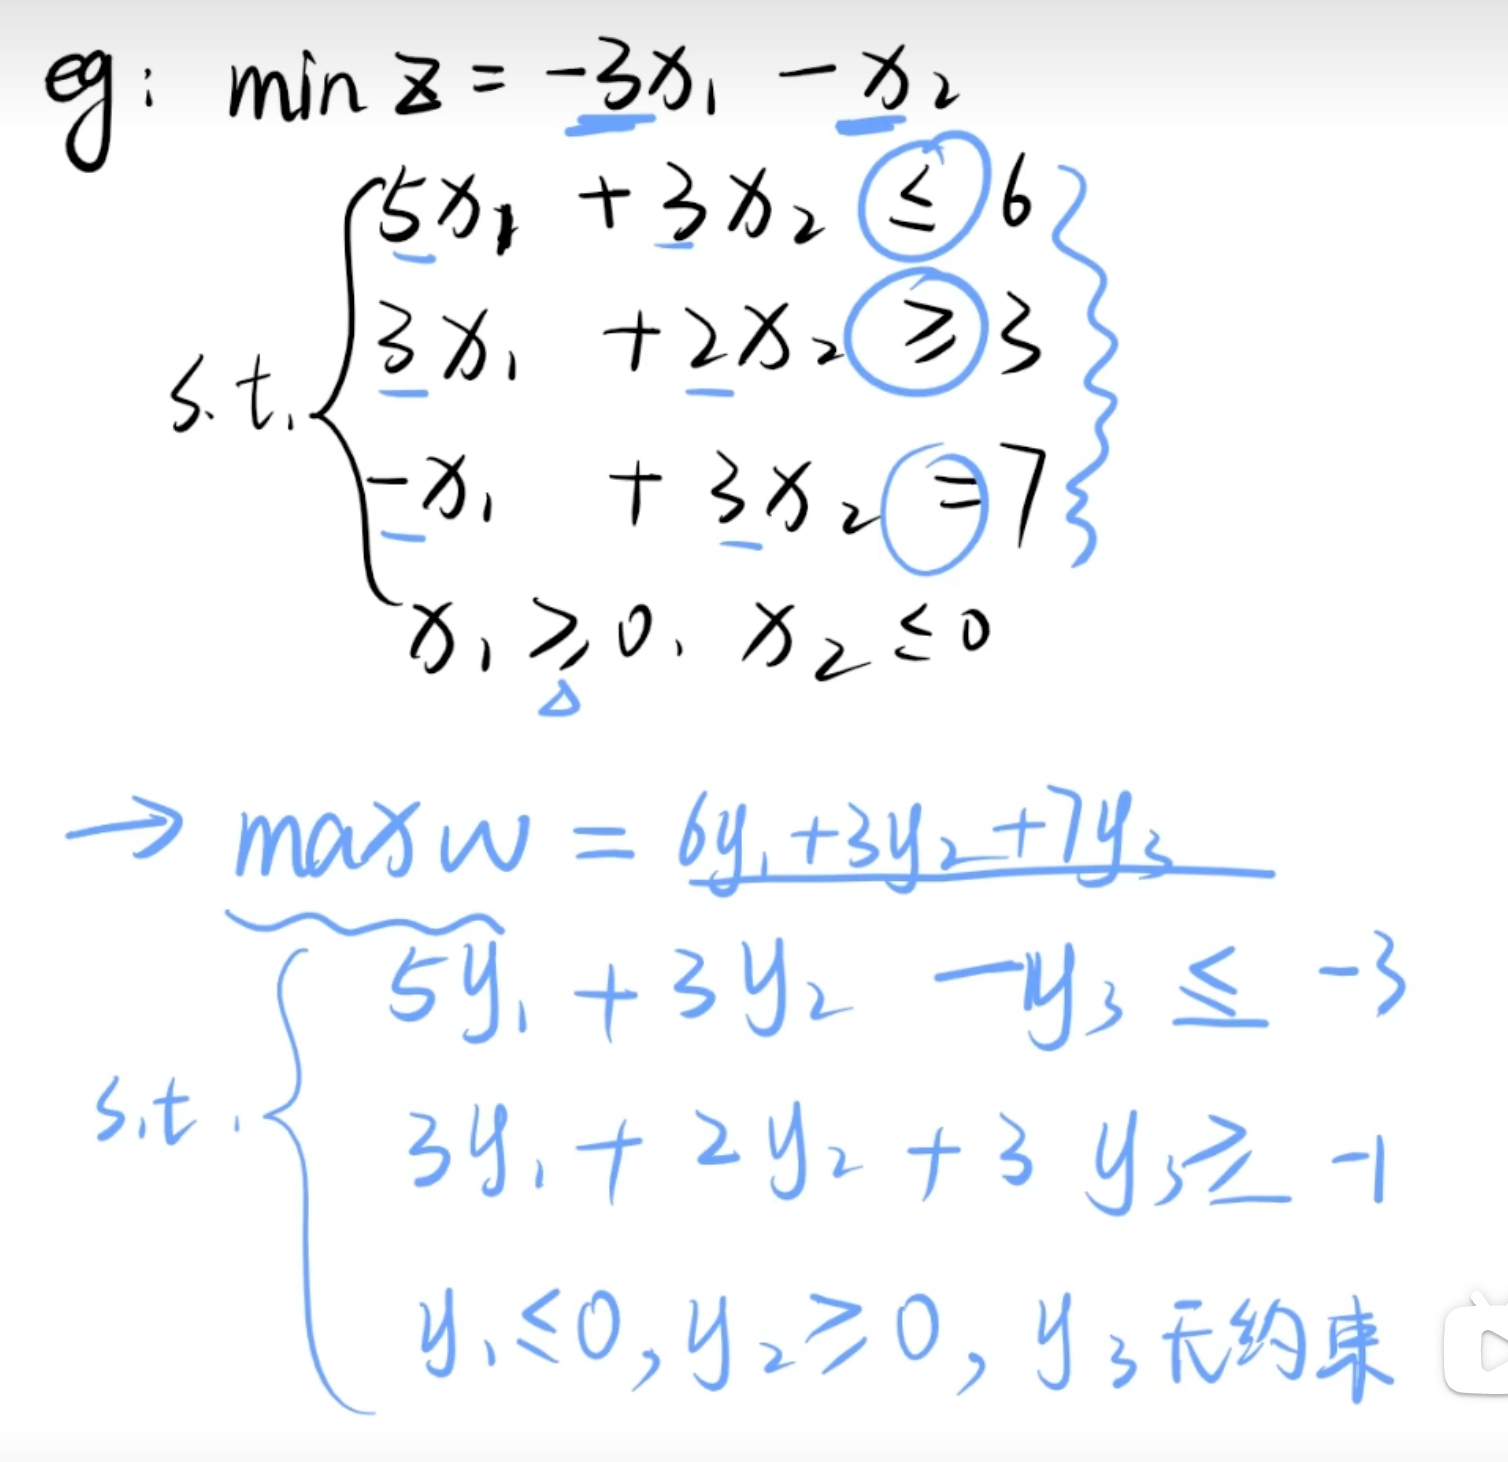 eg: min z = -3x₁ - x₂
5x₁ + 3x₂ ≤ 6
3x₁ + 2x₂ ≥ 3
s.t.
-x₁ + 3x₂ = 7
x₁ ≥ 0, x₂ ≤ 0
→ max w = 6y₁ + 3y₂ + 7y₃
5y₁ + 3y₂ - y₃ ≤ -3
s.t.
3y₁ + 2y₂ + 3y₃ ≥ -1
y₁ ≤ 0, y₂ ≥ 0, y₃ 无约束